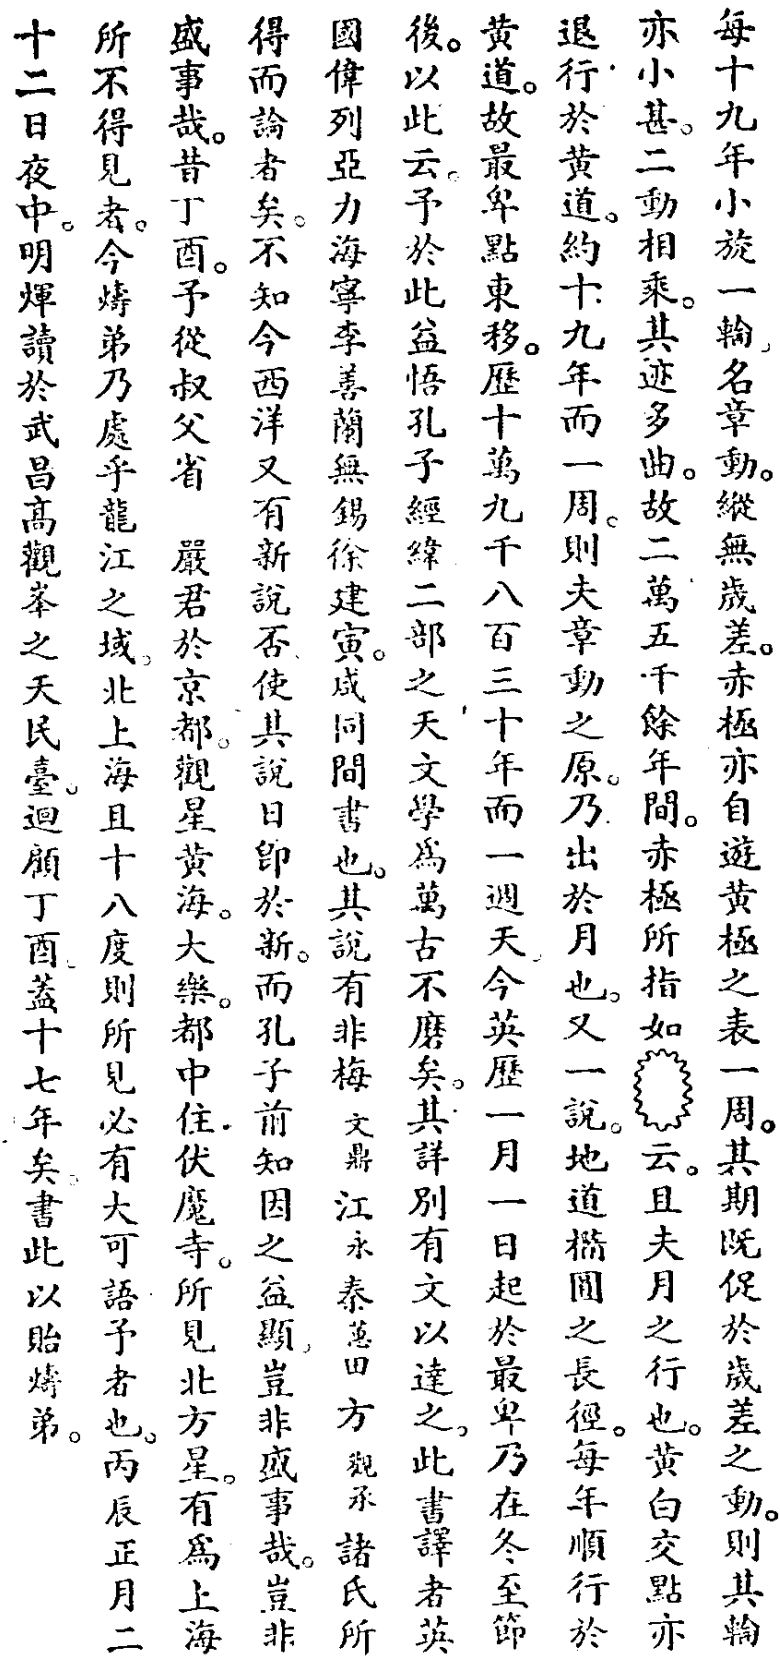 每十九年小旋一輪、名章動。縱無歲差。赤極亦自遊黃極之表一周。其期既促於歲差之動。則其輪
亦小甚。二動相乘。其迹多曲。故二萬五千餘年間。赤極所指如云。且夫月之行也。黃白交點亦
退行於黃道。約十九年而一周。則夫章動之原。乃出於月也。又一說。地道橢圓之長徑。每年順行於
黃道。故最卑點東移。歷十萬九千八百三十年而一週天、今英歷一月一日起於最卑乃在冬至節
後。以此云。予於此益悟孔子經緯二部之天文學爲萬古不磨矣。其詳別有文以達之。此書譯者英
國偉列亞力海寧李善蘭無錫徐建寅。咸同間書也。其說有非梅文鼎江永秦蕙田方觀承諸氏所
得而論者矣。不知今西洋又有新說否、使其說日卽於新。而孔子前知因之益顯、豈非盛事哉。豈非
盛事哉。昔丁酉。予從叔父省　嚴君於京都。觀星黃海。大樂。都中住伏魔寺。所見北方星。有爲上海
所不得見者。今燽弟乃處乎龍江之域。北上海且十八度則所見必有大可語予者也。丙辰正月二
十二日夜中。明煇讀於武昌高觀峯之天民臺。迴顧丁酉、蓋十七年矣。書此以貽燽弟。